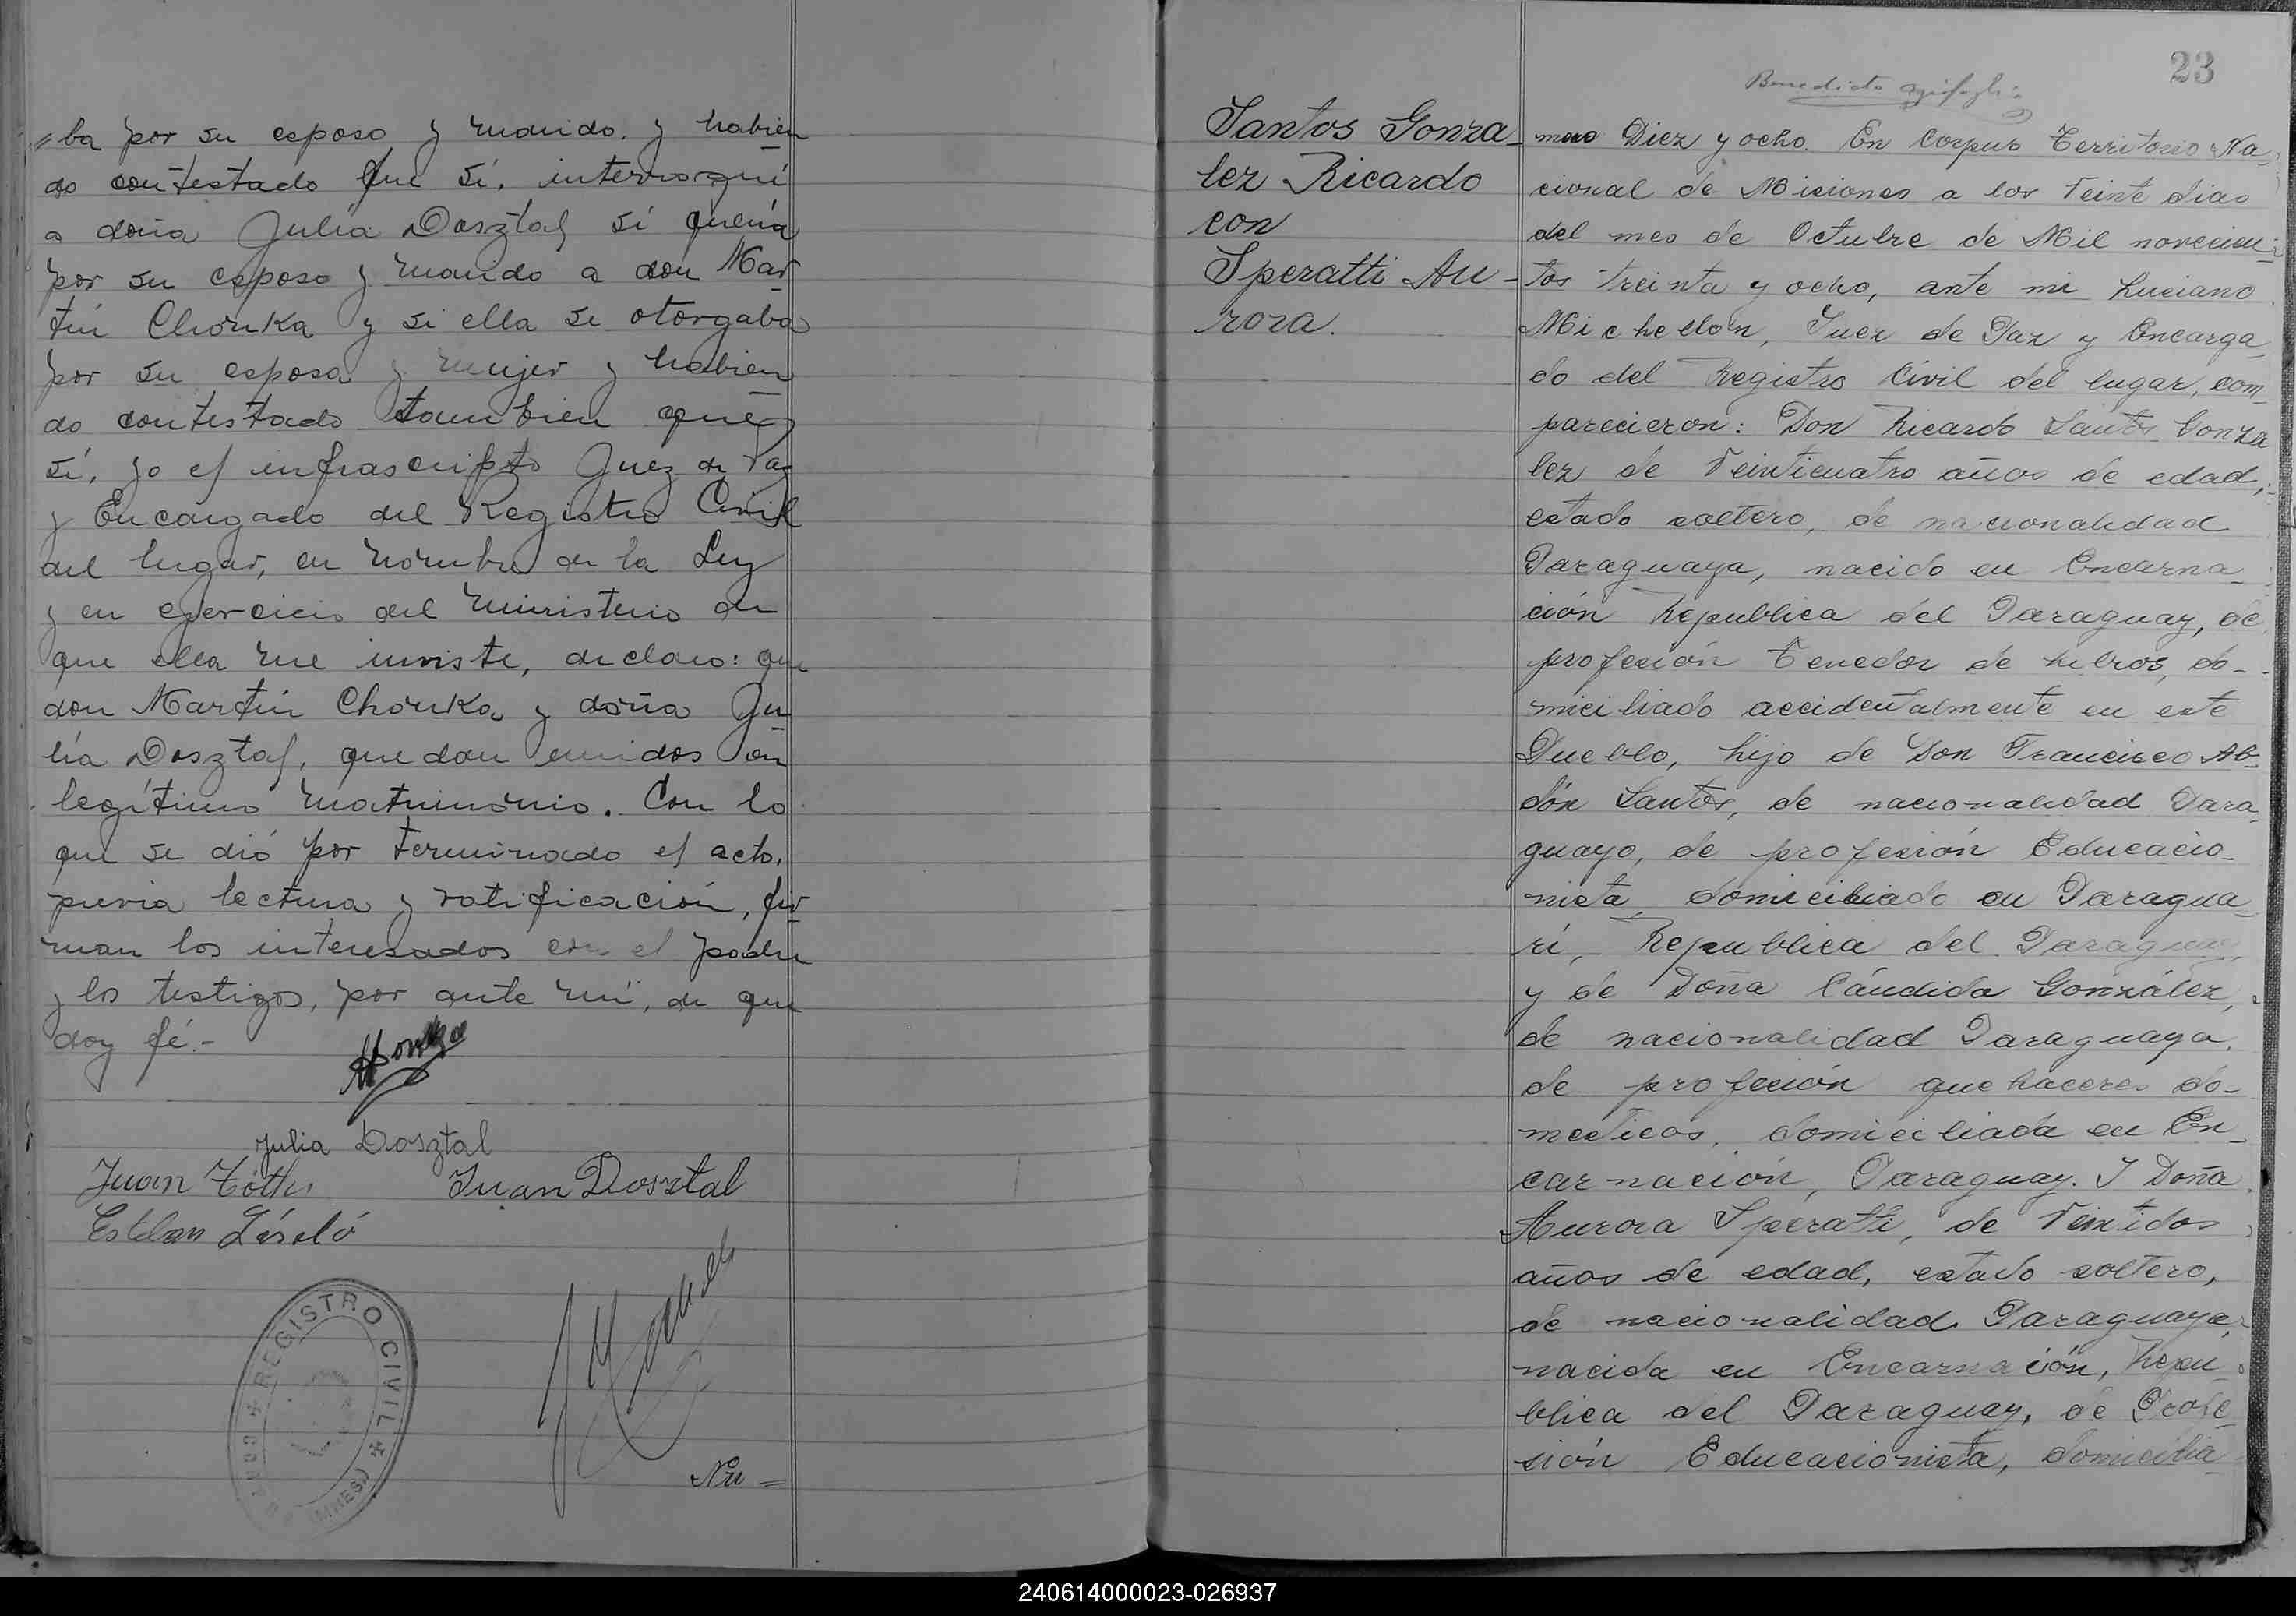 ba por su esposo y marido. y habien
do contestado que sí, interrogué
a doña Julia Dosztal si quería
por su esposo y marido a don Mar
tín Chonka y si ella se otorgaba
por su esposa y mujer y habien
do contestado tambien que
sí, yo el infrascripto Juez de Paz
y Encargado del Registro Civil
del lugar, en nombre de la Ley
y en ejercicio del ministerio de
que ella me inviste, declaro: que
don Martín Chonka y doña Ju
lia Dosztal, quedan unidos en
legítimo matrimonio. Con lo
que se dió por terminado el acto,
previa lectura y ratificación, fir
man los interesados con el padre
y los testigos, por ante mí, de que
doy fé.-
Julia Dosztal
Juan Tóth
Juan Dosztal
Esteban László
REGISTRO CIVIL
Nu=
23
Benedicto
Santos Gonza-
lez Ricardo
con
Speratti Au-
rora.
mero Diez y ocho. En Corpus Territorio Na-
cional de Misiones a los Veinte dias
del mes de Octubre de Mil novecien-
tos treinta y ocho, ante mi Luciano
Michellon, Juez de Paz y Encarga-
do del Registro Civil del lugar, com-
parecieron: Don Ricardo Santos Gonza
lez de Veinticuatro años de edad,
estado soltero, de nacionalidad
Paraguaya, nacido en Encarna-
ción Republica del Paraguay, de
profesión Tenedor de Libros, do-
miciliado accidentalmente en este
Pueblo, hijo de Don Francisco Ab-
dón Santos, de nacionalidad Para-
guayo, de profesión Educacio-
nista, domiciliado en Paragua-
rí, Republica del Paraguay,
y de Doña Cándida González,
de nacionalidad Paraguaya,
de profesión quehaceres do-
mesticos, domiciliada en En-
carnación, Paraguay. Y Doña
Aurora Speratti, de Veintidos
años de edad, estado soltero,
de nacionalidad Paraguaya,
nacida en Encarnación, Repu-
blica del Paraguay, de Profe-
sión Educacionista, domicilia-
240614000023-026937